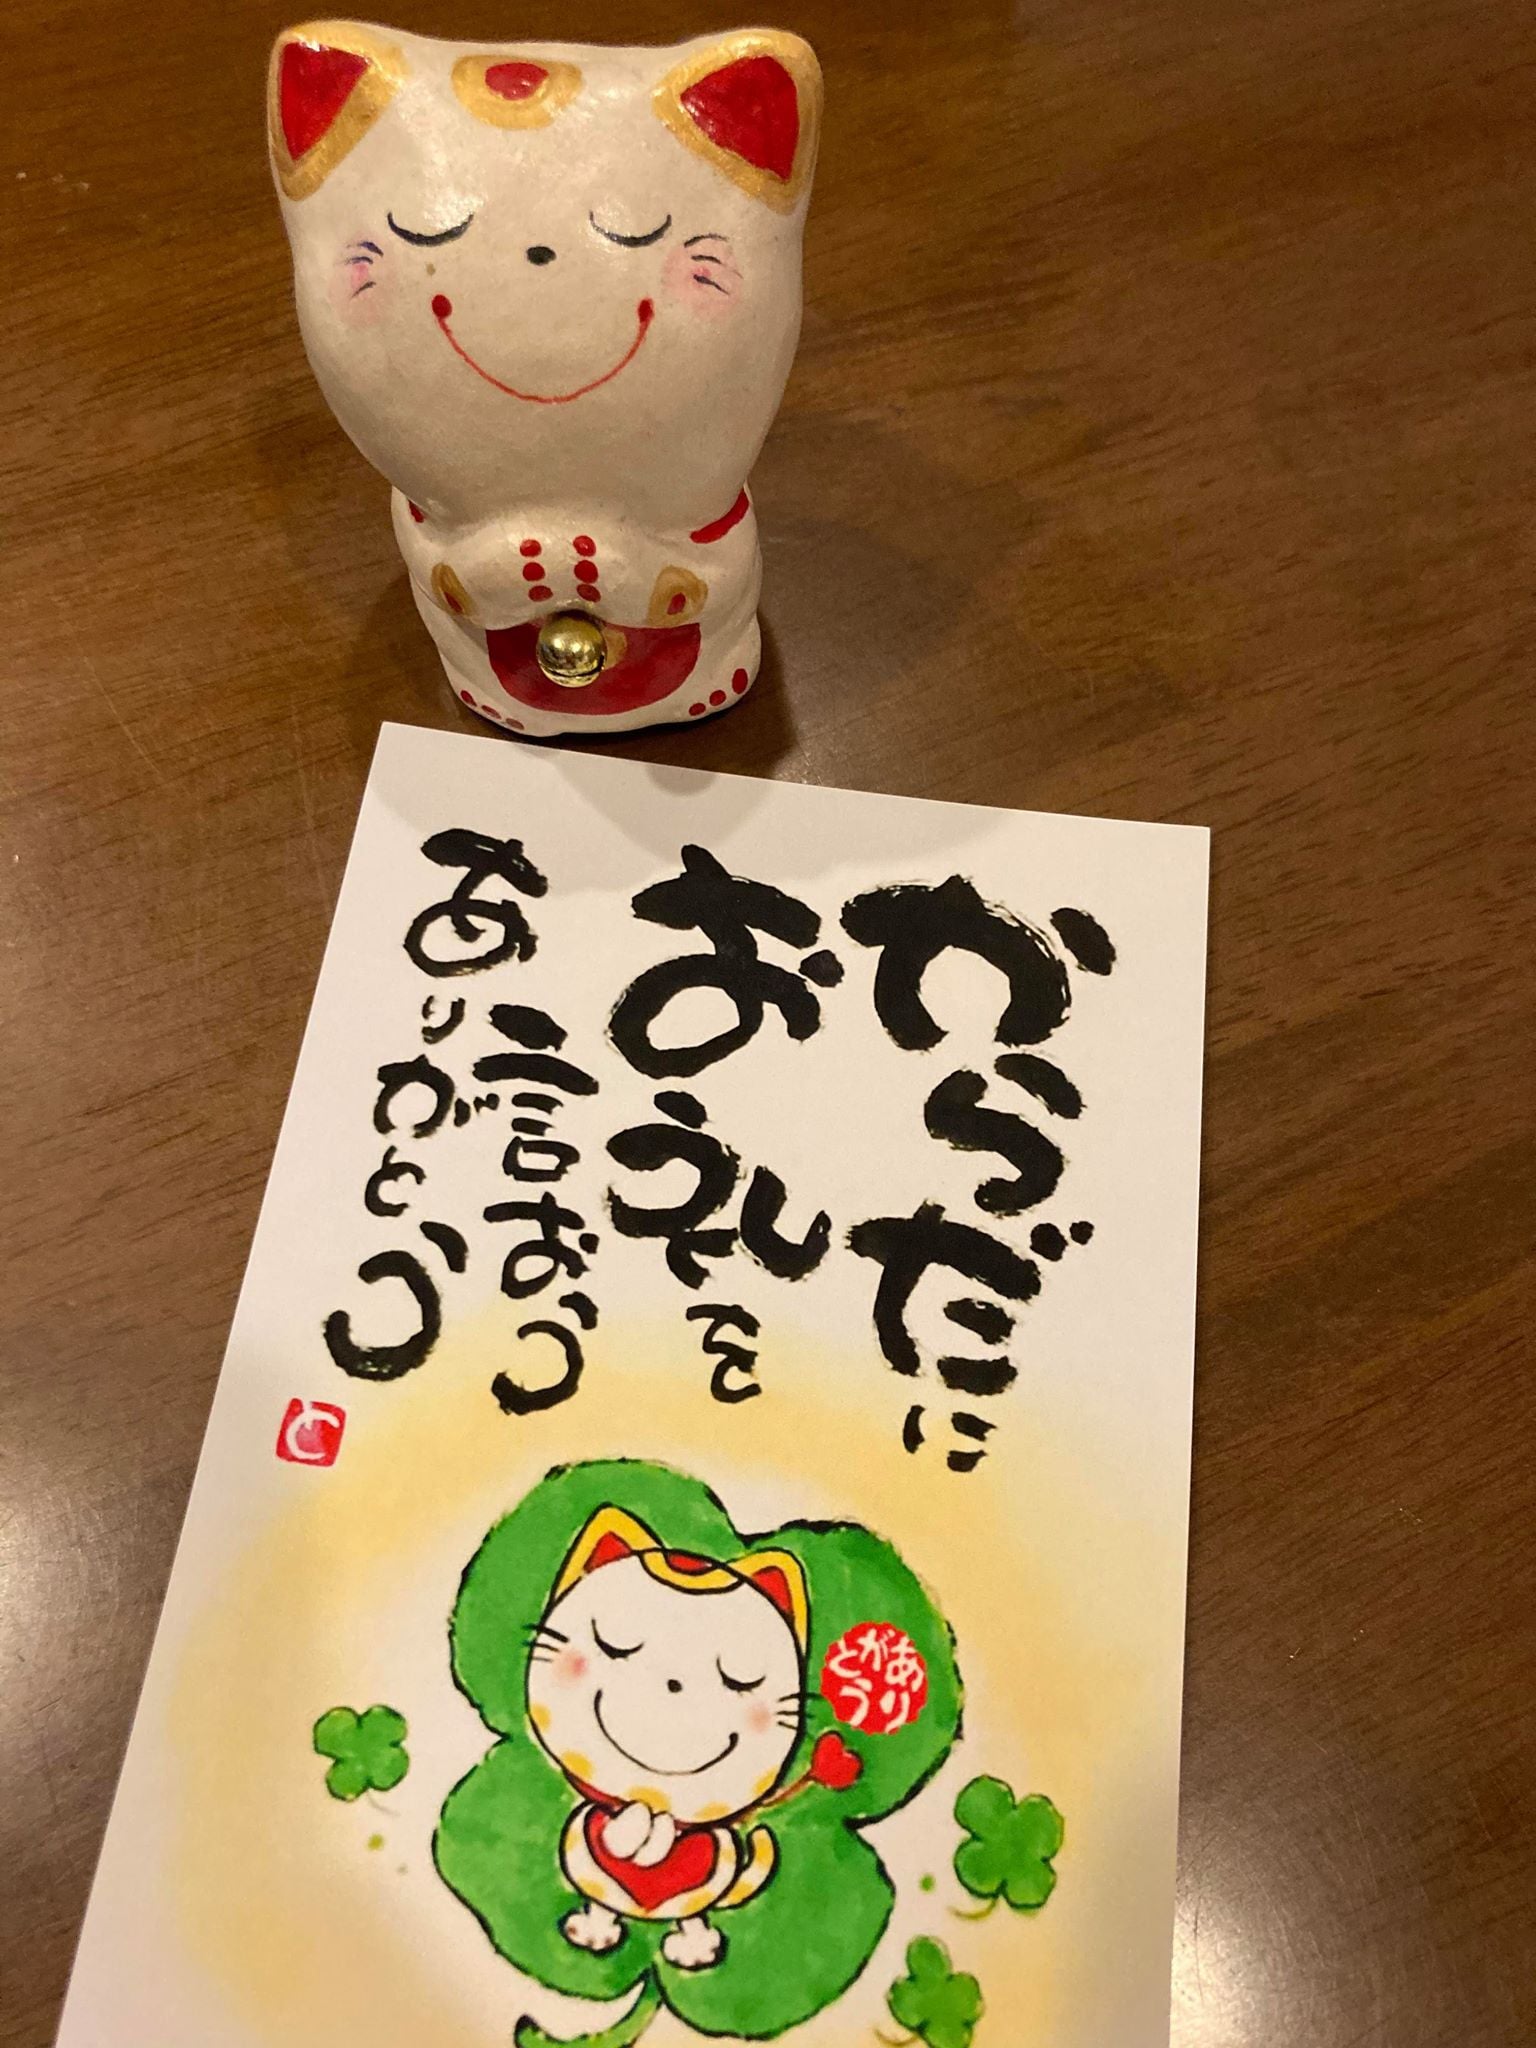 からだに
おえんを
言おう
ありがとう
と
ありがとう